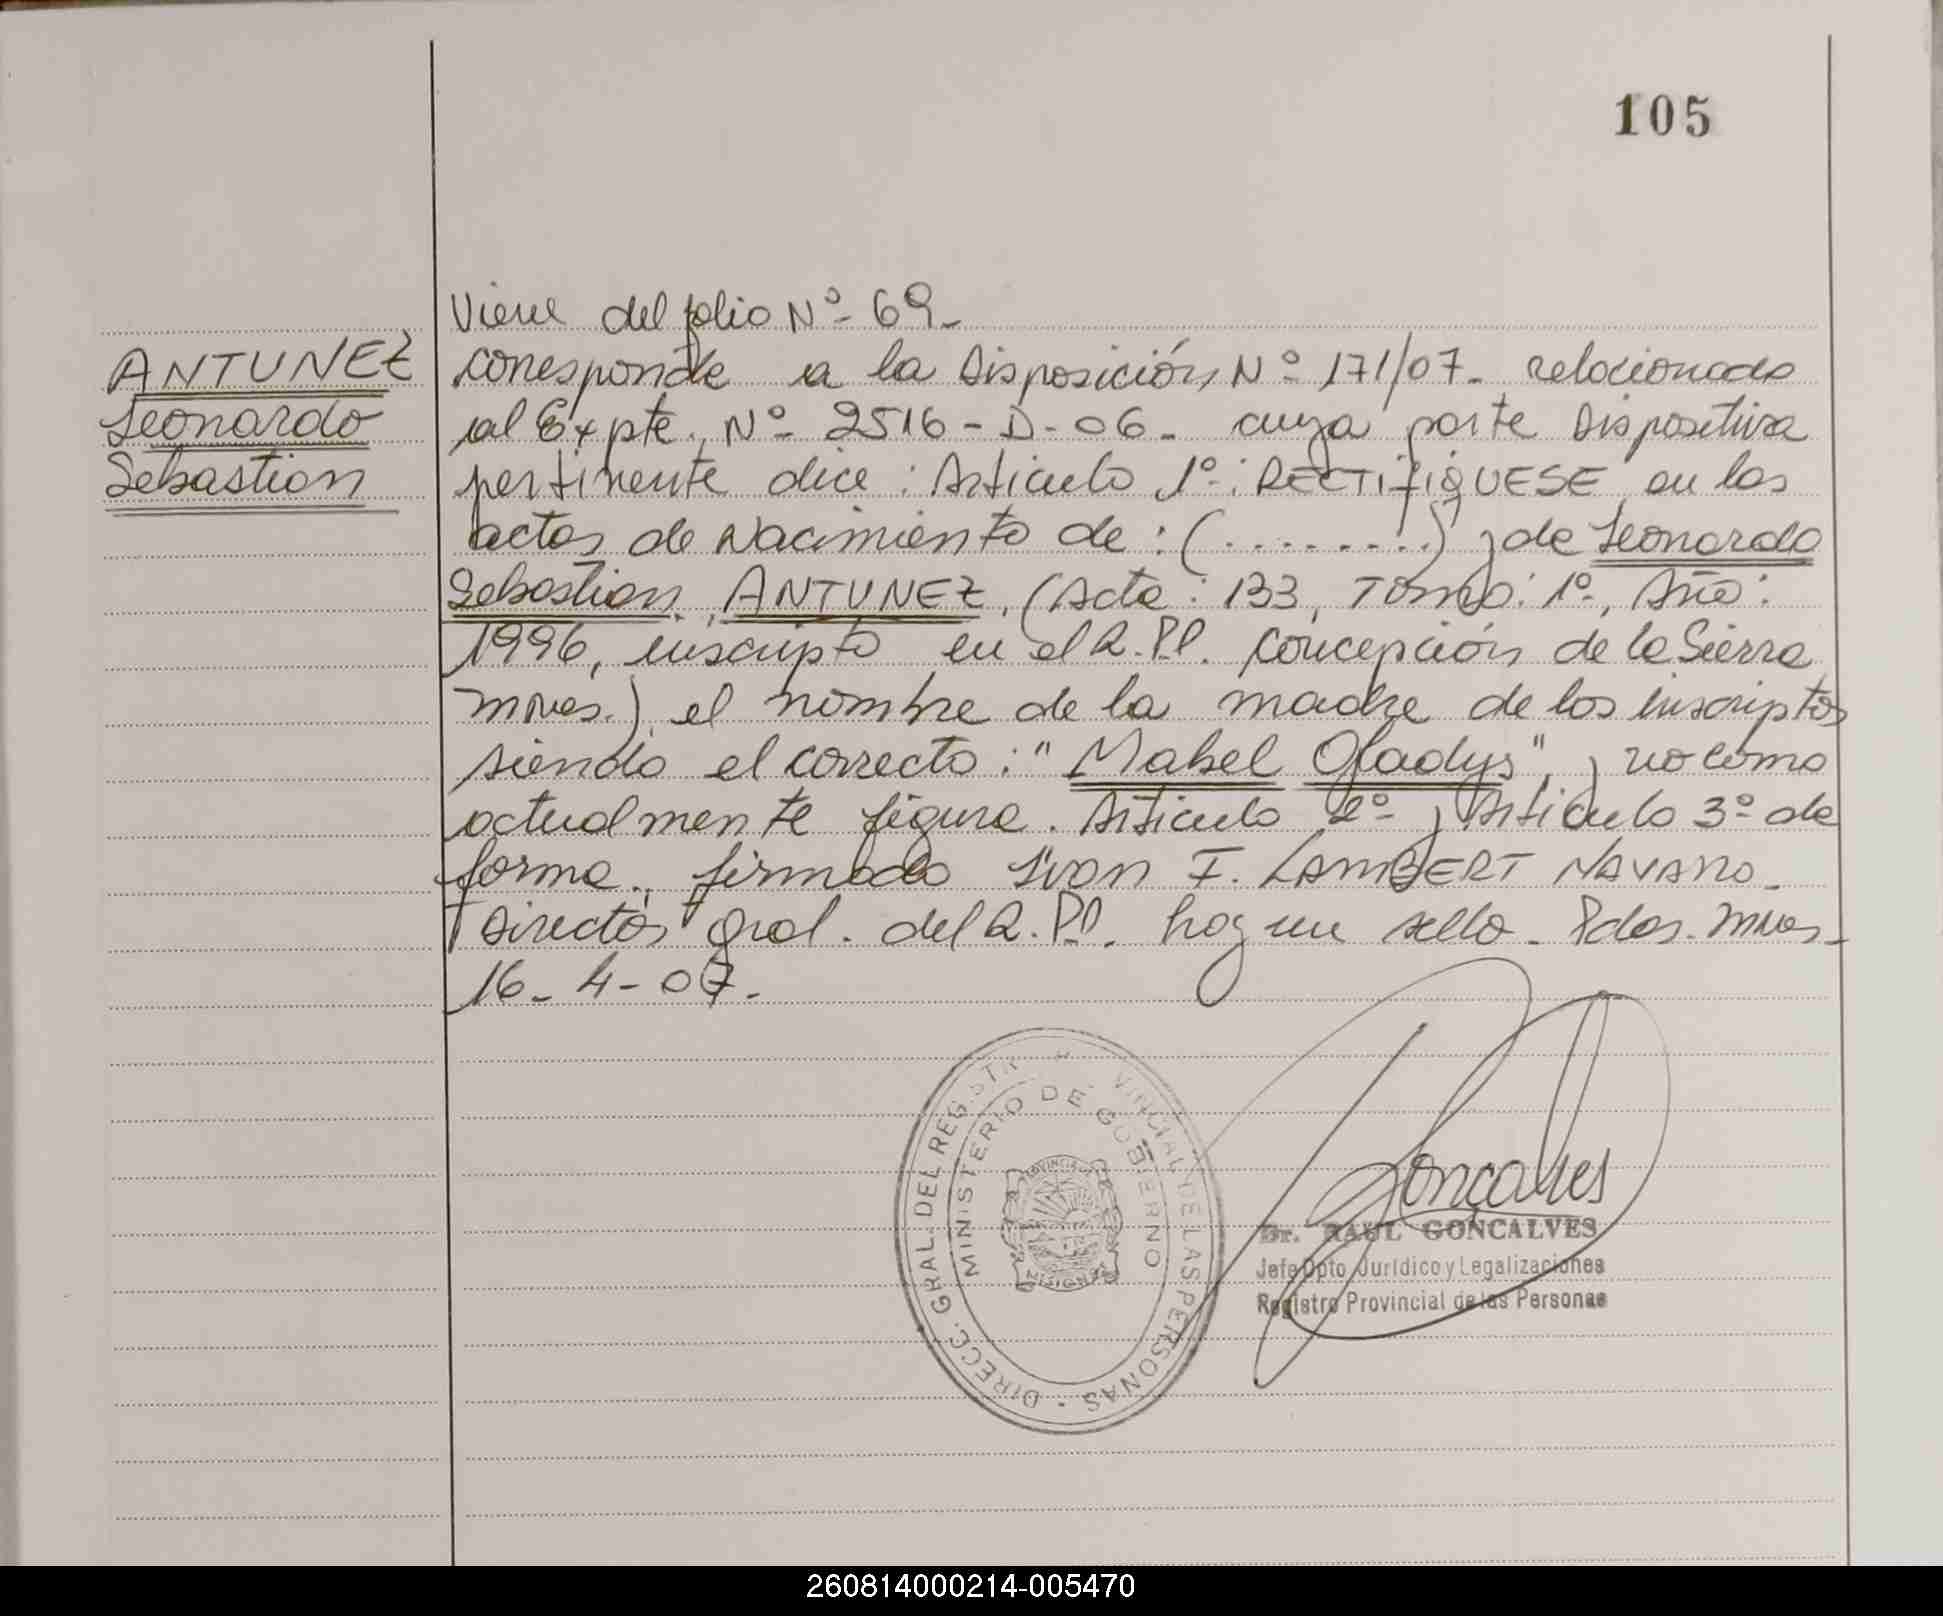 105
Viene del folio Nº 69.-
ANTUNEZ
Leonardo
Sebastian
corresponde a la Disposición Nº 171/07- relacionado
al Expte. Nº 2516-D-06- cuya parte Dispositiva
pertinente dice: Articulo 1º: RECTIFIQUESE en las
actas de Nacimiento de: (........) y de Leonardo
Sebastian ANTUNEZ, (Acta: 133, Tomo: 1º, Año:
1996, inscripto en el R.P.P. Concepción de la Sierra
Mnes.) el nombre de la madre de los inscriptos
siendo el correcto: "Mabel Gladys", y no como
actualmente figura. Articulo 2º y Articulo 3º de
forma., firmado Ivan F. LAMBERT NAVARRO-
Director Gral. del R.P.P. hay un sello- Pdas. Mnes-
16-4-07-
DIRECC. GRAL. DEL REGISTR VINCIAL DE LAS PERSONAS
MINISTERIO DE GOBIERNO
PROVINCIA DE
MISIONES
Gonçalves
Dr. RAUL GONÇALVES
Jefe Dpto Jurídico y Legalizaciones
Registro Provincial de las Personas
260814000214-005470